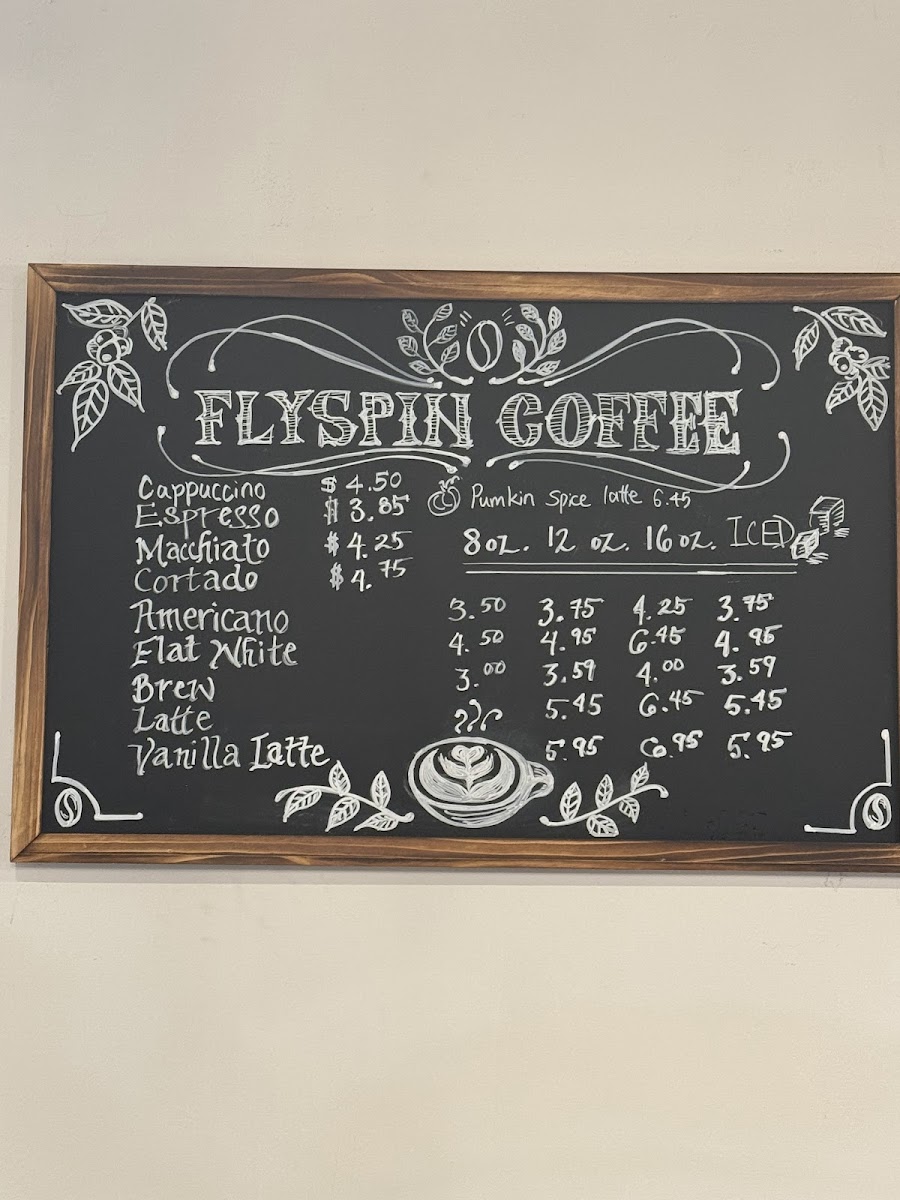 FLYSPIN COFFEE
Cappuccino $ 4.50
Espresso $ 3.85
Macchiato $ 4.25
Cortado $ 4.75
Pumkin spice latte 6.45
8 oz. 12 oz. 16 oz. ICED
Americano 3.50 3.75 4.25 3.75
Flat White 4.50 4.95 6.45 4.95
Brew 3.00 3.59 4.00 3.59
Latte 5.45 6.45 5.45
Vanilla Latte 5.95 6.95 5.95